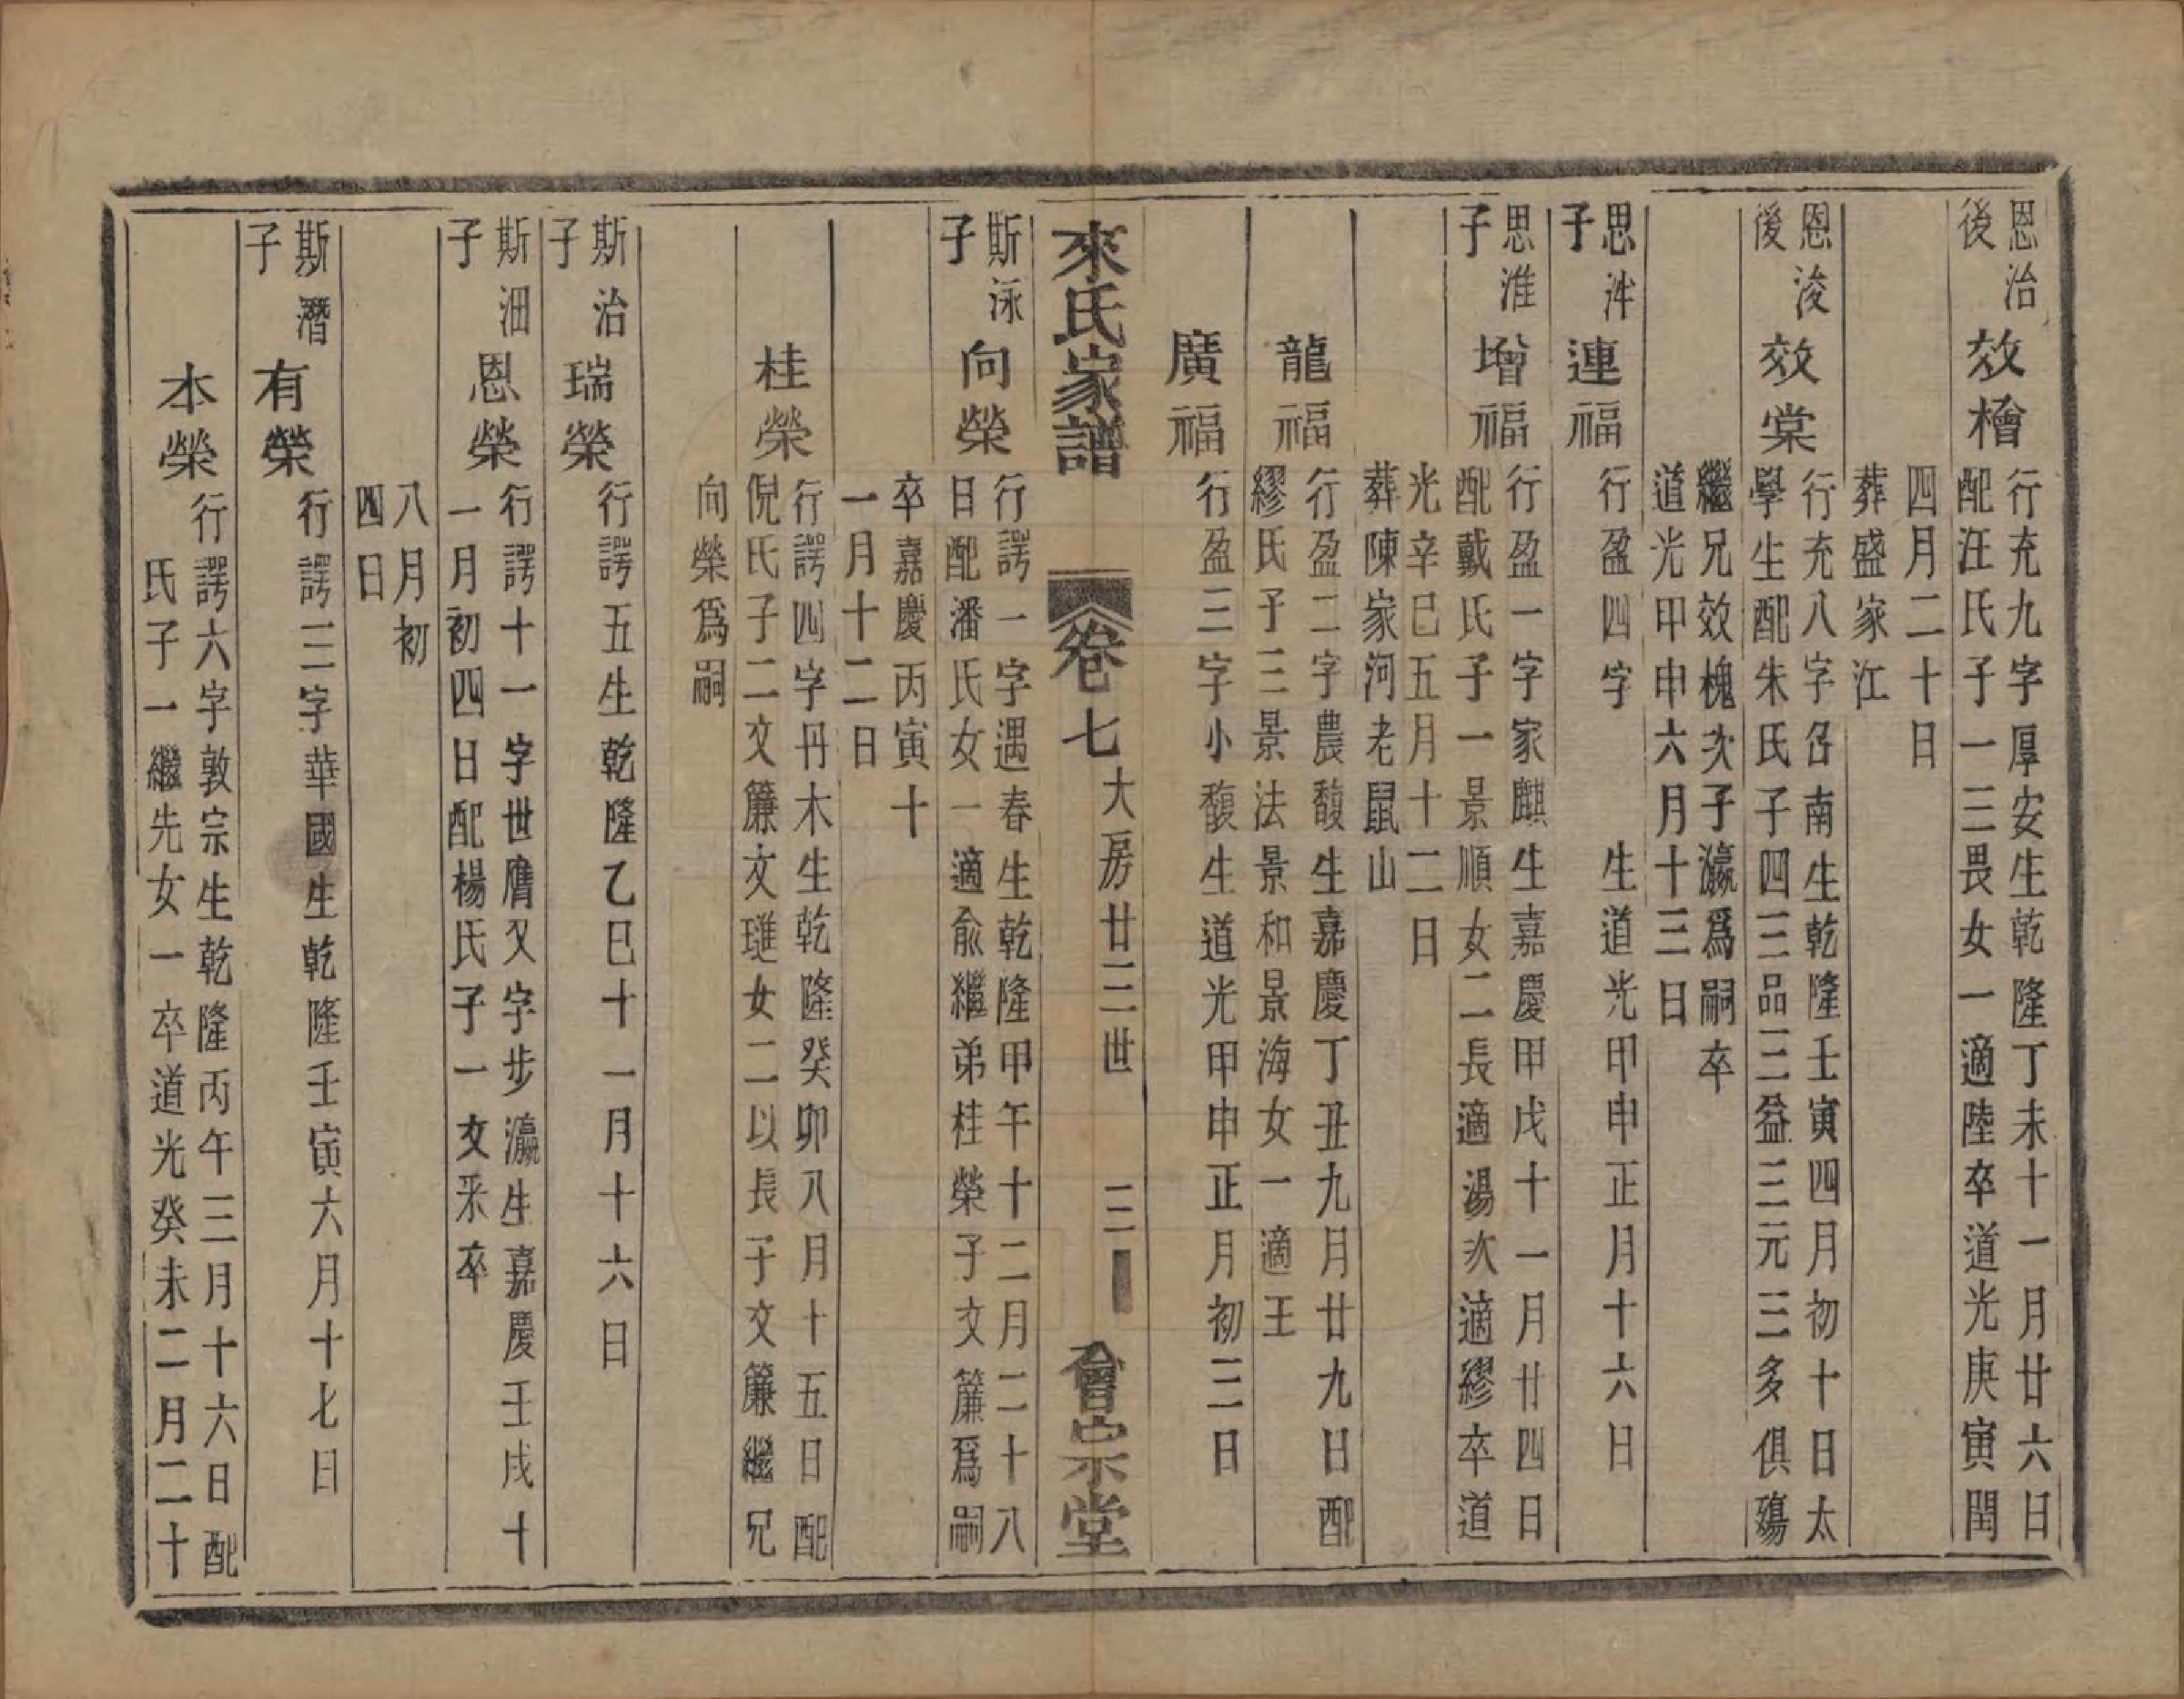 恩治
後
效檜
行充九字厚安生乾隆丁未十一月廿六日
配汪氏子一三畏女一適陸卒道光庚寅閏
四月二十日
葬盛家江
恩浚
後
效棠
行充八字召南生乾隆壬寅四月初十日太
學生配朱氏子四三品三益三元三多俱殤
繼兄效槐次子瀛爲嗣卒
道光甲申六月十三日
思泮
子
連福
行盈四字 生道光甲申正月十六日
思淮
子
增福
行盈一字家麒生嘉慶甲戌十一月廿四日
配戴氏子一景順女二長適湯次適繆卒道
光辛巳五月十二日
葬陳家河老鼠山
龍福
行盈二字農馥生嘉慶丁丑九月廿九日配
繆氏子三景法景和景海女一適王
廣福
行盈三字小馥生道光甲申正月初三日
來氏家譜
卷七
大房廿三世
三
會宗堂
斯泳
子
向榮
行諤一字遇春生乾隆甲午十二月二十八
日配潘氏女一適俞繼弟桂榮子文簾爲嗣
卒嘉慶丙寅十
一月十二日
桂榮
行諤四字丹木生乾隆癸卯八月十五日配
倪氏子二文簾文璡女二以長子文簾繼兄
向榮爲嗣
斯治
子
瑞榮
行諤五生乾隆乙巳十一月十六日
斯沺
子
恩榮
行諤十一字世膺又字步瀛生嘉慶壬戌十
一月初四日配楊氏子一文釆卒
八月初
四日
斯潛
子
有榮
行諤三字華國生乾隆壬寅六月十七日
本榮
行諤六字敦宗生乾隆丙午三月十六日配
氏子一繼先女一卒道光癸未二月二十